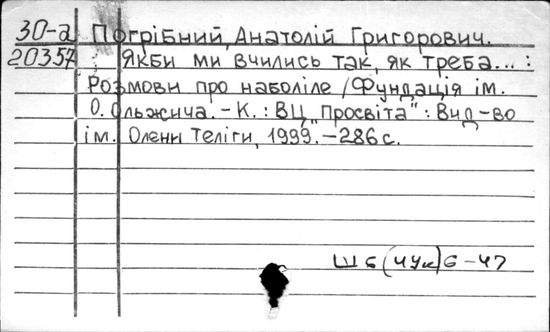 30-а Погрібний, Анатолій Григорович.
20357 Якби ми вчились так, як треба... :
Розмови про наболіле / Фундація ім.
О. Ольжича. - К. : ВЦ „Просвіта“ : Вид-во
ім. Олени Теліги, 1999. - 286 с.
Ш6(4Ук)6-47